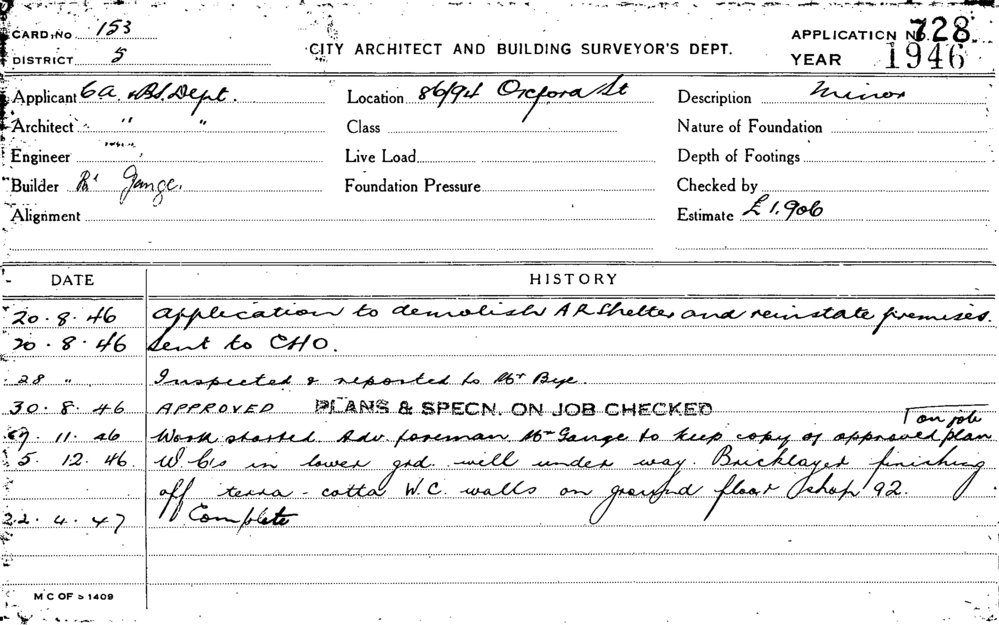 CARD No 153
DISTRICT 5
CITY ARCHITECT AND BUILDING SURVEYOR'S DEPT.
APPLICATION No. 728
YEAR 1946
Applicant CA. & BS. Dept. Location 86/94 Oxford St Description Minor
Architect " " Class Nature of Foundation
Engineer Live Load Depth of Footings
Builder R. Gange. Foundation Pressure Checked by
Alignment Estimate £1.906
DATE HISTORY
20.8.46 Application to demolish AR Shelter and reinstate premises.
20.8.46 Sent to CHO.
28 " Inspected & reported to Mr Bye.
30.8.46 APPROVED PLANS & SPECN. ON JOB CHECKED
on job
11.46 Work started. Adv. foreman Mr Gange to keep copy of approved plan
5.12.46. W.C's in lower grd. well under way. Bricklayer finishing
off terra-cotta W.C. walls on ground floor shop 92.
22.4.47 Complete
M C OF S 1409